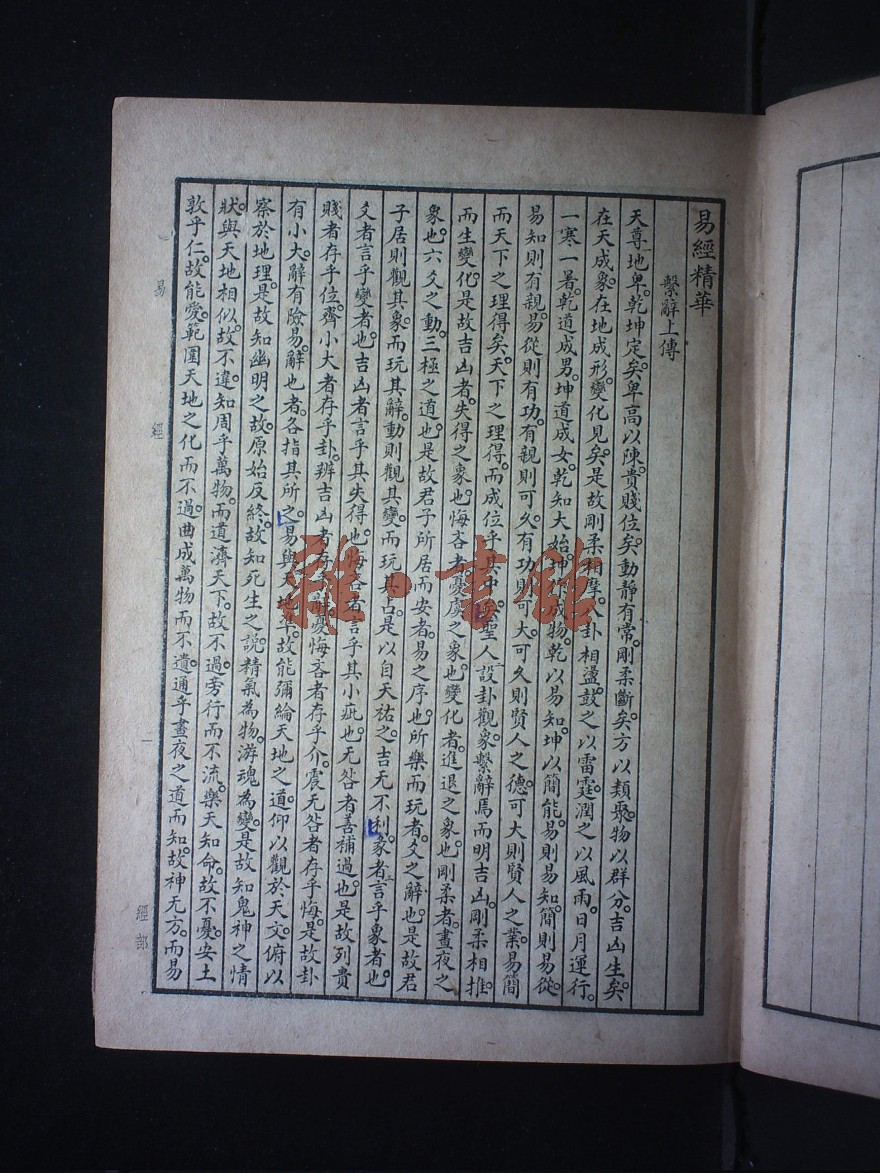 易經精華
繫辭上傳
天尊地卑。乾坤定矣。卑高以陳。貴賤位矣。動靜有常。剛柔斷矣。方以類聚。物以群分。吉凶生矣。
在天成象。在地成形。變化見矣。是故剛柔相摩。八卦相盪。鼓之以雷霆。潤之以風雨。日月運行。
一寒一暑。乾道成男。坤道成女。乾知大始。坤作成物。乾以易知。坤以簡能。易則易知。簡則易從。
易知則有親。易從則有功。有親則可久。有功則可大。可久則賢人之德。可大則賢人之業。易簡
而天下之理得矣。天下之理得。而成位乎其中。聖人設卦觀象。繫辭焉而明吉凶。剛柔相推。
而生變化。是故吉凶者。失得之象也。悔吝者。憂虞之象也。變化者。進退之象也。剛柔者。晝夜之
象也。六爻之動。三極之道也。是故君子所居而安者。易之序也。所樂而玩者。爻之辭也。是故君
子居則觀其象。而玩其辭。動則觀其變。而玩其占。是以自天祐之。吉无不利。彖者。言乎象者也。
爻者。言乎變者也。吉凶者。言乎其失得也。悔吝者。言乎其小疵也。无咎者。善補過也。是故列貴
賤者存乎位。齊小大者存乎卦。辨吉凶者存乎辭。憂悔吝者存乎介。震无咎者存乎悔。是故卦
有小大。辭有險易。辭也者。各指其所之。易與天地準。故能彌綸天地之道。仰以觀於天文。俯以
察於地理。是故知幽明之故。原始反終。故知死生之說。精氣為物。游魂為變。是故知鬼神之情
狀。與天地相似。故不違。知周乎萬物。而道濟天下。故不過。旁行而不流。樂天知命。故不憂。安土
敦乎仁。故能愛。範圍天地之化而不過。曲成萬物而不遺。通乎晝夜之道而知。故神无方。而易
易 經 一 經部
雜·書館